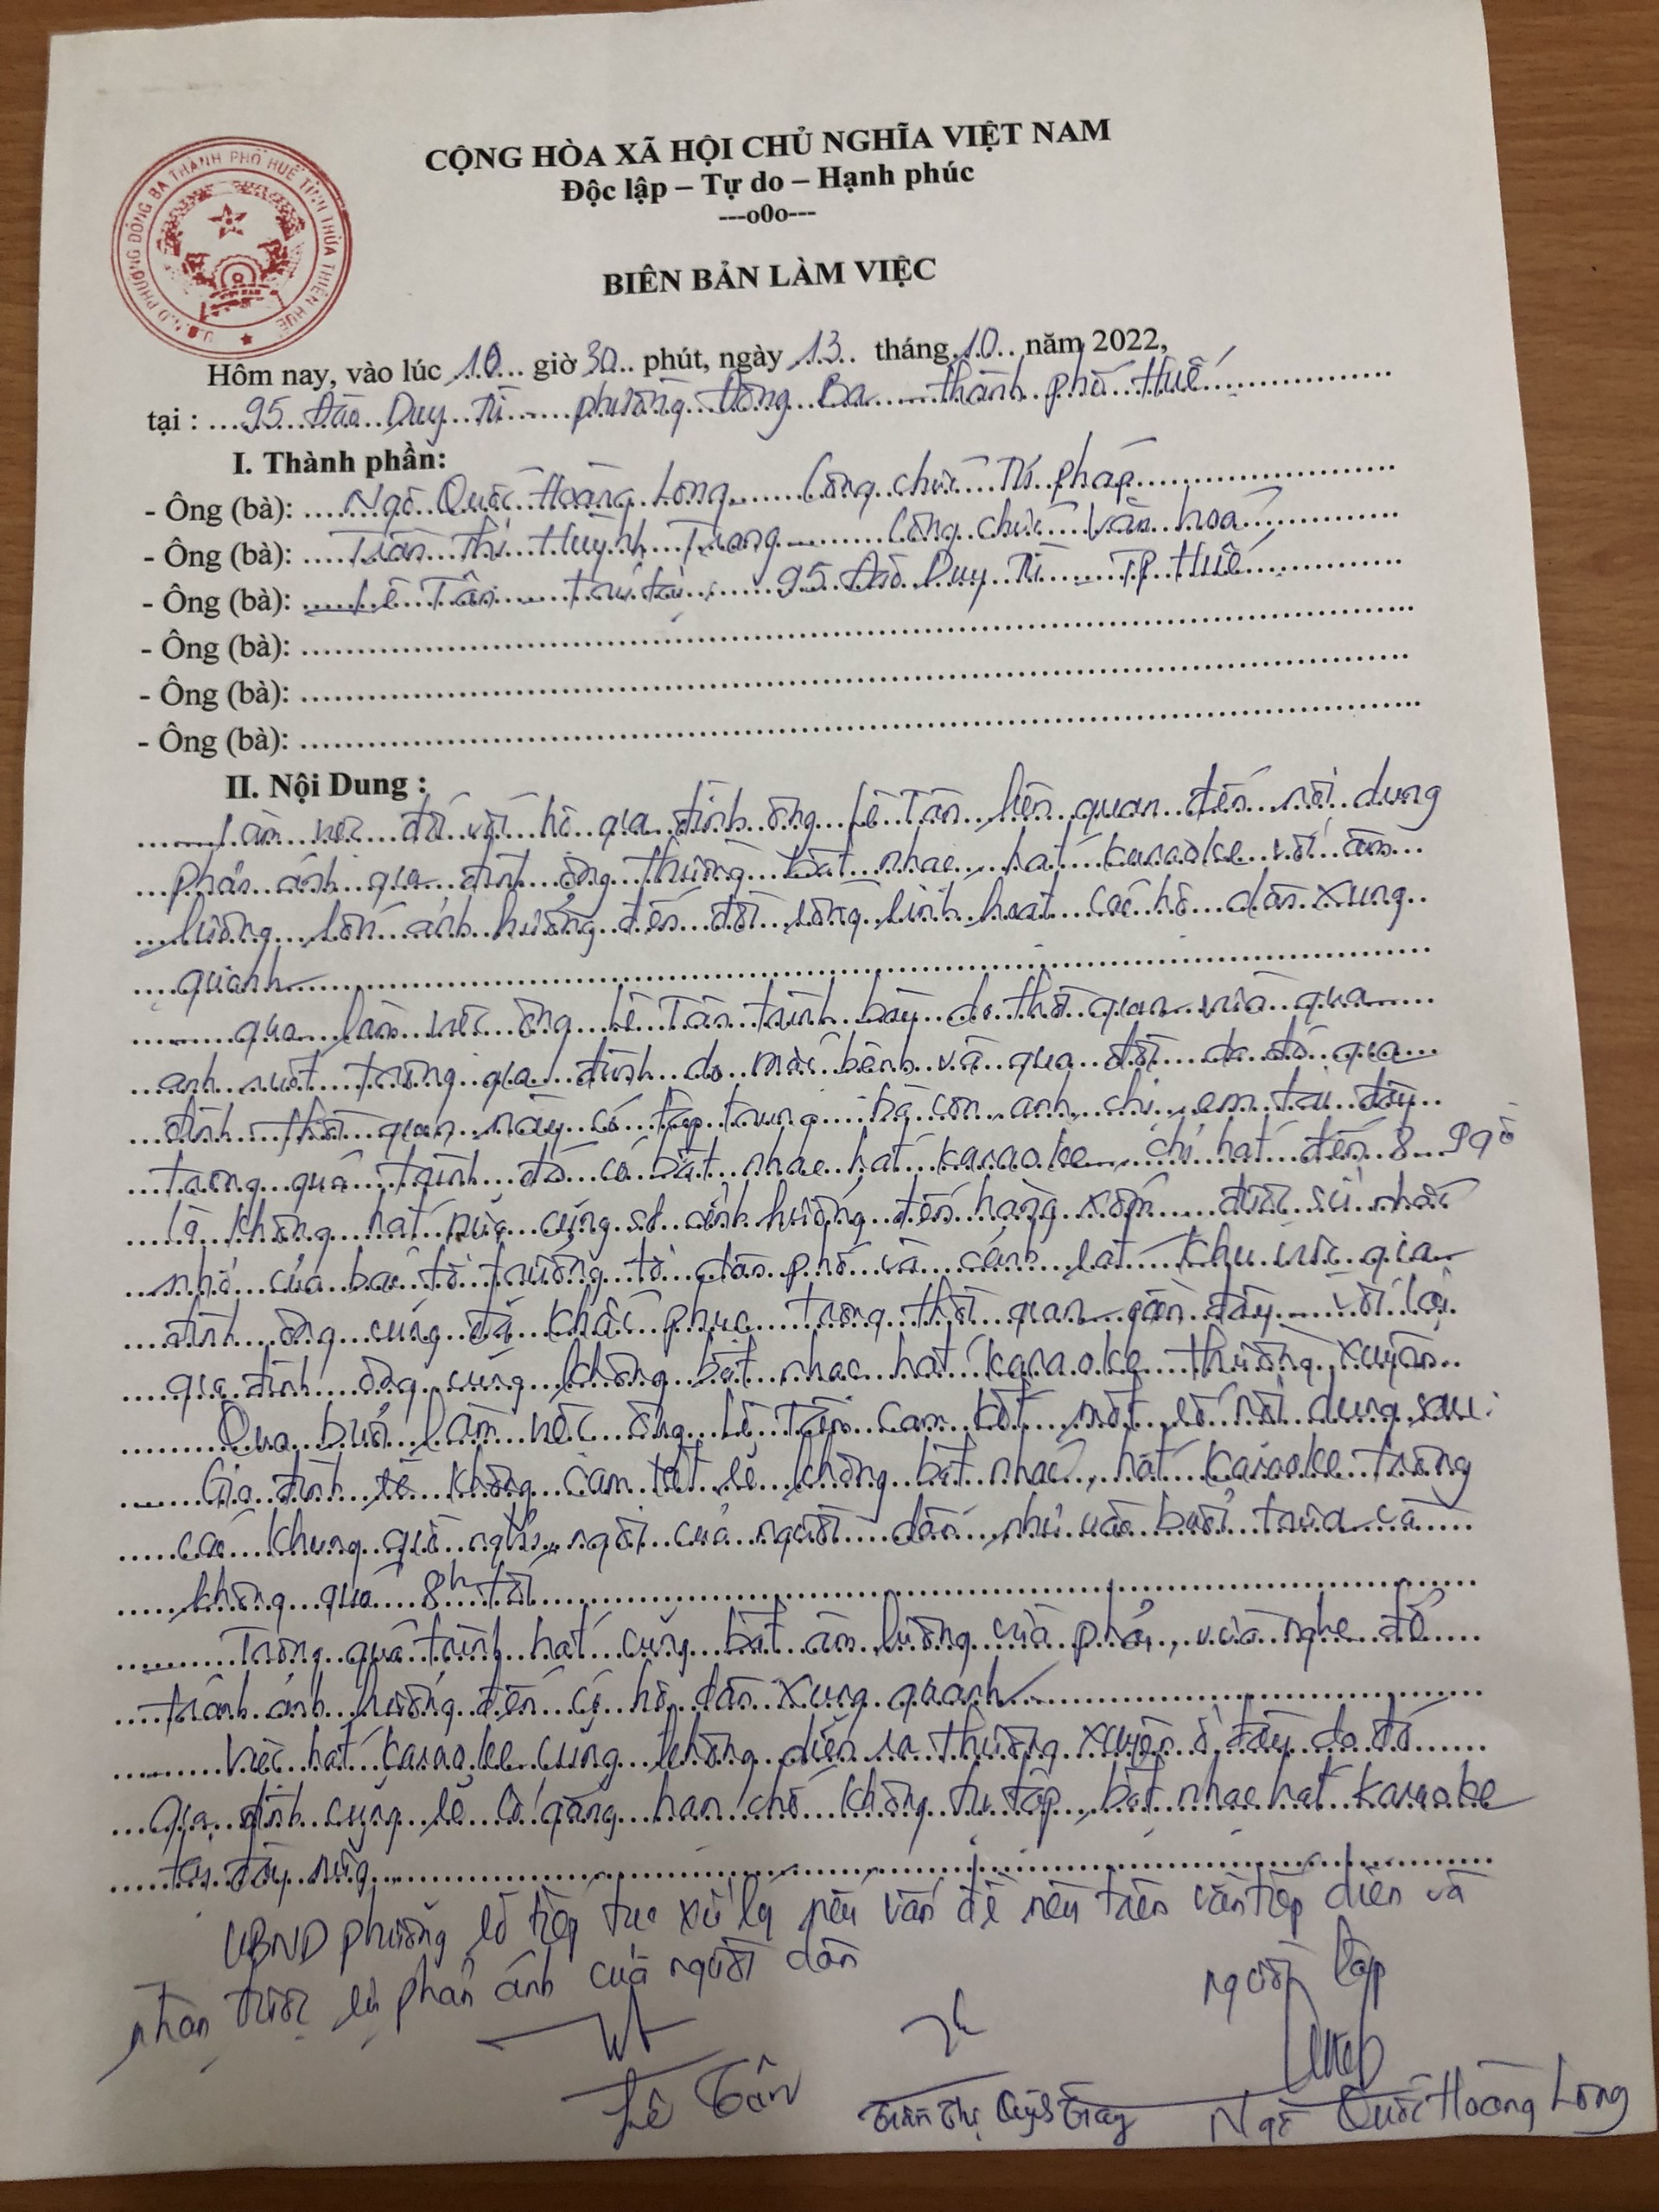 U.B.N.D PHƯỜNG ĐÔNG BA THÀNH PHỐ HUẾ TỈNH THỪA THIÊN HUẾ
CỘNG HÒA XÃ HỘI CHỦ NGHĨA VIỆT NAM
Độc lập – Tự do – Hạnh phúc
---o0o---
BIÊN BẢN LÀM VIỆC
Hôm nay, vào lúc 10 giờ 30 phút, ngày 13 tháng 10 năm 2022,
tại : 95 Đào Duy Từ - phường Đông Ba - thành phố Huế
I. Thành phần:
- Ông (bà): Ngô Quốc Hoàng Long Công chức Tư pháp
- Ông (bà): Trần Thị Huỳnh Trang Công chức Văn hoá
- Ông (bà): Lê Tân trú tại : 95 Đào Duy Từ - TP Huế
- Ông (bà):
- Ông (bà):
- Ông (bà):
II. Nội Dung :
Làm việc đối với hộ gia đình ông Lê Tân liên quan đến nội dung
phản ánh gia đình ông thường bật nhạc, hát karaoke với âm
lượng lớn ảnh hưởng đến đời sống sinh hoạt các hộ dân xung
quanh
qua làm việc ông Lê Tân trình bày do thời gian vừa qua
anh ruột trong gia đình do mắc bệnh và qua đời do đó gia
đình thời gian này có tập trung bà con anh, chị, em tại đây
trong quá trình đó có bật nhạc hát karaoke, chỉ hát đến 8 - 9 giờ
là không hát nữa cũng sợ ảnh hưởng đến hàng xóm được sự nhắc
nhở của bác tổ trưởng tổ dân phố và cảnh sát khu vực gia
đình ông cũng đã khắc phục trong thời gian gần đây với lại
gia đình ông cũng không bật nhạc hát karaoke thường xuyên
Qua buổi làm việc ông Lê Tân cam kết một số nội dung sau:
Gia đình sẽ không cam kết sẽ không bật nhạc, hát karaoke trong
các khung giờ nghỉ ngơi của người dân như vào buổi trưa và
không quá 8h tối
Trong quá trình hát cũng bật âm lượng vừa phải, vừa nghe để
tránh ảnh hưởng đến các hộ dân xung quanh
Việc hát karaoke cũng không diễn ra thường xuyên ở đây do đó
gia đình cũng sẽ cố gắng hạn chế không tụ tập, bật nhạc hát karaoke
tại đây nữa
UBND phường sẽ tiếp tục xử lý nếu vấn đề nêu trên vẫn tiếp diễn và
nhận được sự phản ánh của người dân
người lập
Lê Tân
Trần Thị Huỳnh Trang
Ngô Quốc Hoàng Long